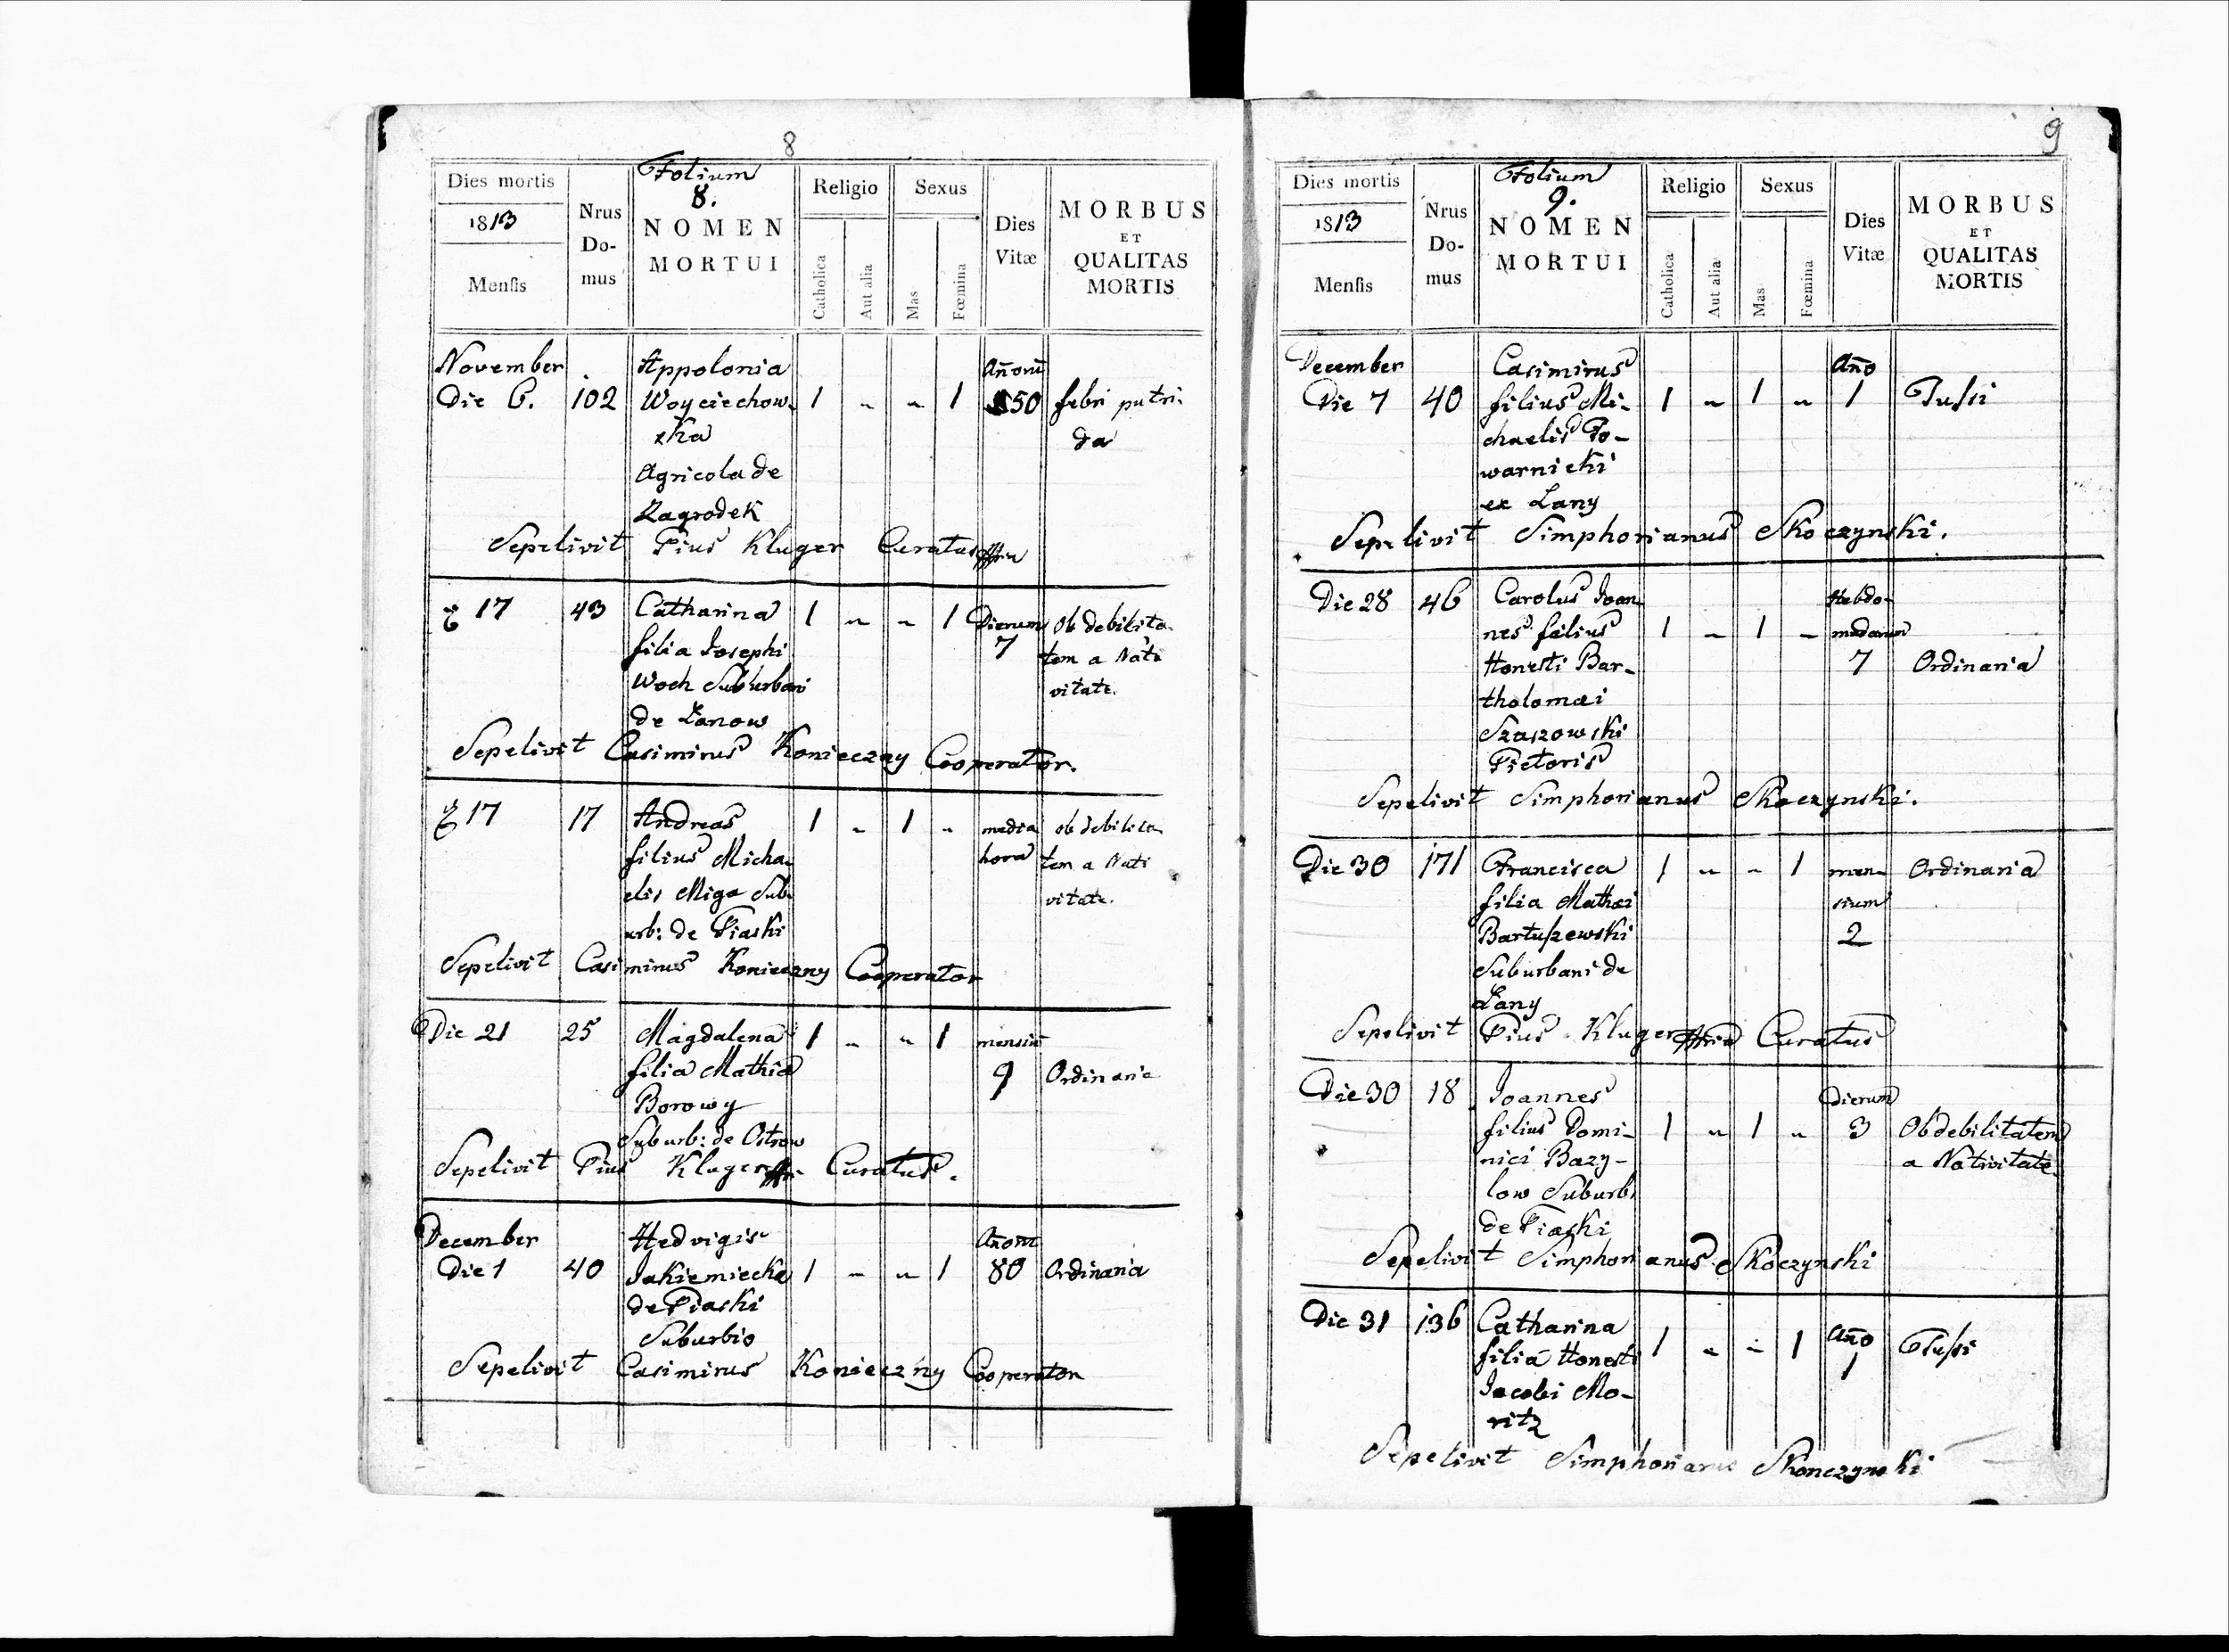 8
Folium
8.
Dies mortis
1813
Mensis
Nrus
Do-
mus
NOMEN
MORTUI
Religio
Catholica
Aut alia
Sexus
Mas
Fœmina
Dies
Vitæ
MORBUS
ET
QUALITAS
MORTIS
November
Die 6. 102 1 „ „ 1
Appolonia
Woyciechow-
ska
Agricola de
Zagrodek
Añorũ
50
febri putri-
da
Sepelivit Pius Kluger Curatus
17 43 1 „ „ 1
Catharina
filia Josephi
Woch Suburbani
de Lanow
Dierum
7
Ob debilita-
tem a Nati
vitate.
Sepelivit Casimirus Konieczny Cooperator.
17 17 1 „ 1 „
Andreas
filius Micha-
elis Miga Sub-
urb: de Piaski
media
hora
ob debilita-
tem a Nati
vitate.
Sepelivit Casimirus Konieczny Cooperator
Die 21 25 1 „ „ 1
Magdalena
filia Mathia
Borowy
Suburb: de Ostrow
mensiũ
9
Ordinaria
Sepelivit Pius Kluger Curatus.
December
Die 1 40 1 „ „ 1
Hedvigis
Jakiemiecka
de Piaski
Suburbio
80
Ordinaria
Sepelivit Casimirus Konieczny Cooperator
9
Folium
9.
Dies mortis
1813
Mensis
Nrus
Do-
mus
NOMEN
MORTUI
Religio
Catholica
Aut alia
Sexus
Mas
Fœmina
Dies
Vitæ
MORBUS
ET
QUALITAS
MORTIS
December
Die 7 40 1 „ 1 „
Casimirus
filius Mi-
chaelis Po-
warnicki
ex Lany
Año
1
Tussi
Sepelivit Simphorianus Skoczynski.
Die 28 46 1 „ 1 „
Carolus Joan
nes filius
Honesti Bar-
tholomæi
Szaszowski
Pictoris
Hebdo-
madarum
7
Ordinaria
Sepelivit Simphorianus Skoczynski.
Die 30 171 1 „ „ 1
Francisca
filia Mathæi
Bartuszewski
Suburbani de
Lany
men-
sium
2
Ordinaria
Sepelivit Pius Kluger Curatus
Die 30 18 1 „ 1 „
Joannes
filius Domi-
nici Bazy-
low Suburb:
de Piaski
Dierum
3
Ob debilitatem
a Nativitate.
Sepelivit Simphorianus Skoczynski
Die 31 136 1 „ „ 1
Catharina
filia Honesti
Jacobi Mo-
ritz
Año
1
Tussi
Sepelivit Simphorianus Skonczynski